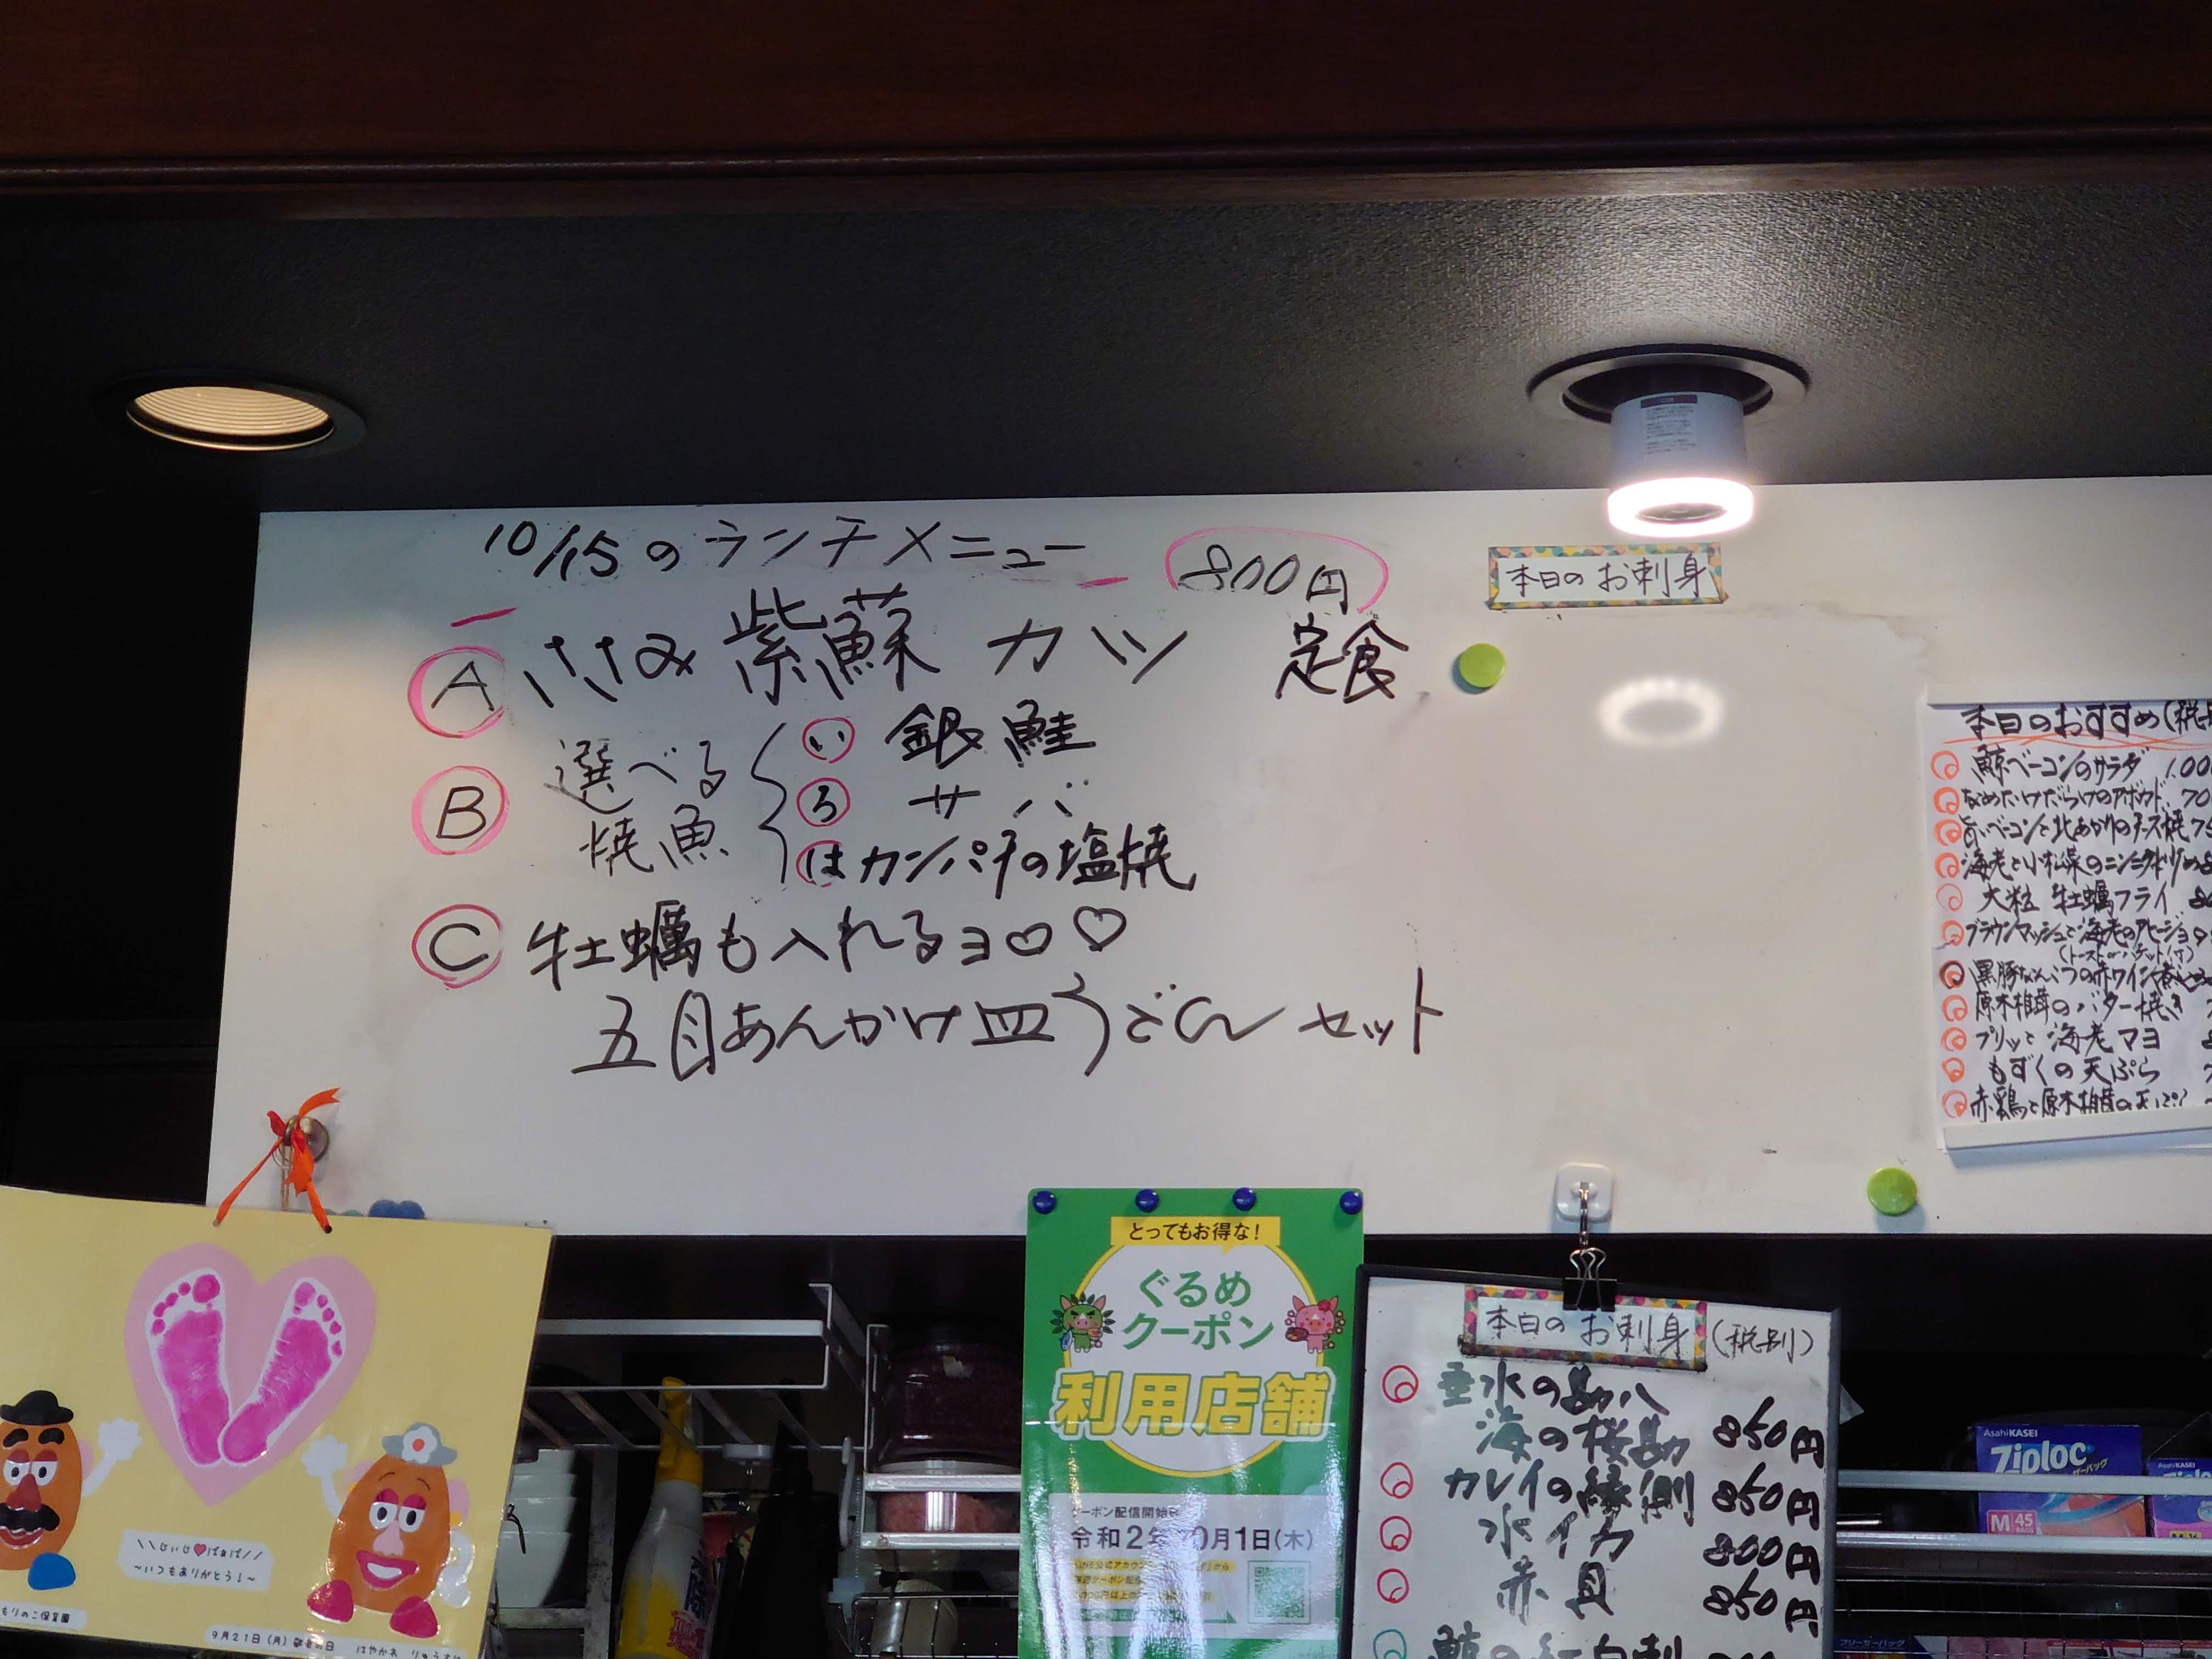 10/15のランチメニュー
800円
A ささみ紫蘇カツ 定食
B 選べる焼魚
い 銀鮭
ろ サバ
は カンパチの塩焼
C 牡蠣も入れるヨ♡♡
五目あんかけ皿うどんセット
本日のお刺身
本日のおすすめ(税別
鯨ベーコンのサラダ 1.00
なめたけだらけのアボカド 70
旨いベーコンと北あかりのチーズ焼 75
海老と小松菜のニンニク
大粒 牡蠣フライ
ブラウンマッシュと海老のアヒージョ
(トースト or バゲット付)
黒豚なんこつの赤ワイン煮込
原木椎茸のバター焼き
プリッと海老マヨ
もずくの天ぷら
赤鶏と原木椎茸の天ぷら
とってもお得な!
ぐるめ
クーポン
利用店舗
クーポン配信開始日
令和2年10月1日(木)
本日のお刺身 (税別)
垂水の勘八
海の桜勘 850円
カレイの縁側 850円
水イカ 800円
赤貝 850円
\\じいじ♥ばぁば//
~いつもありがとう!~
もりのこ保育園
9月21日(月)敬老の日
AsahiKASEI
Ziploc
M 45
AsahiKASEI
フリーザーバッグ